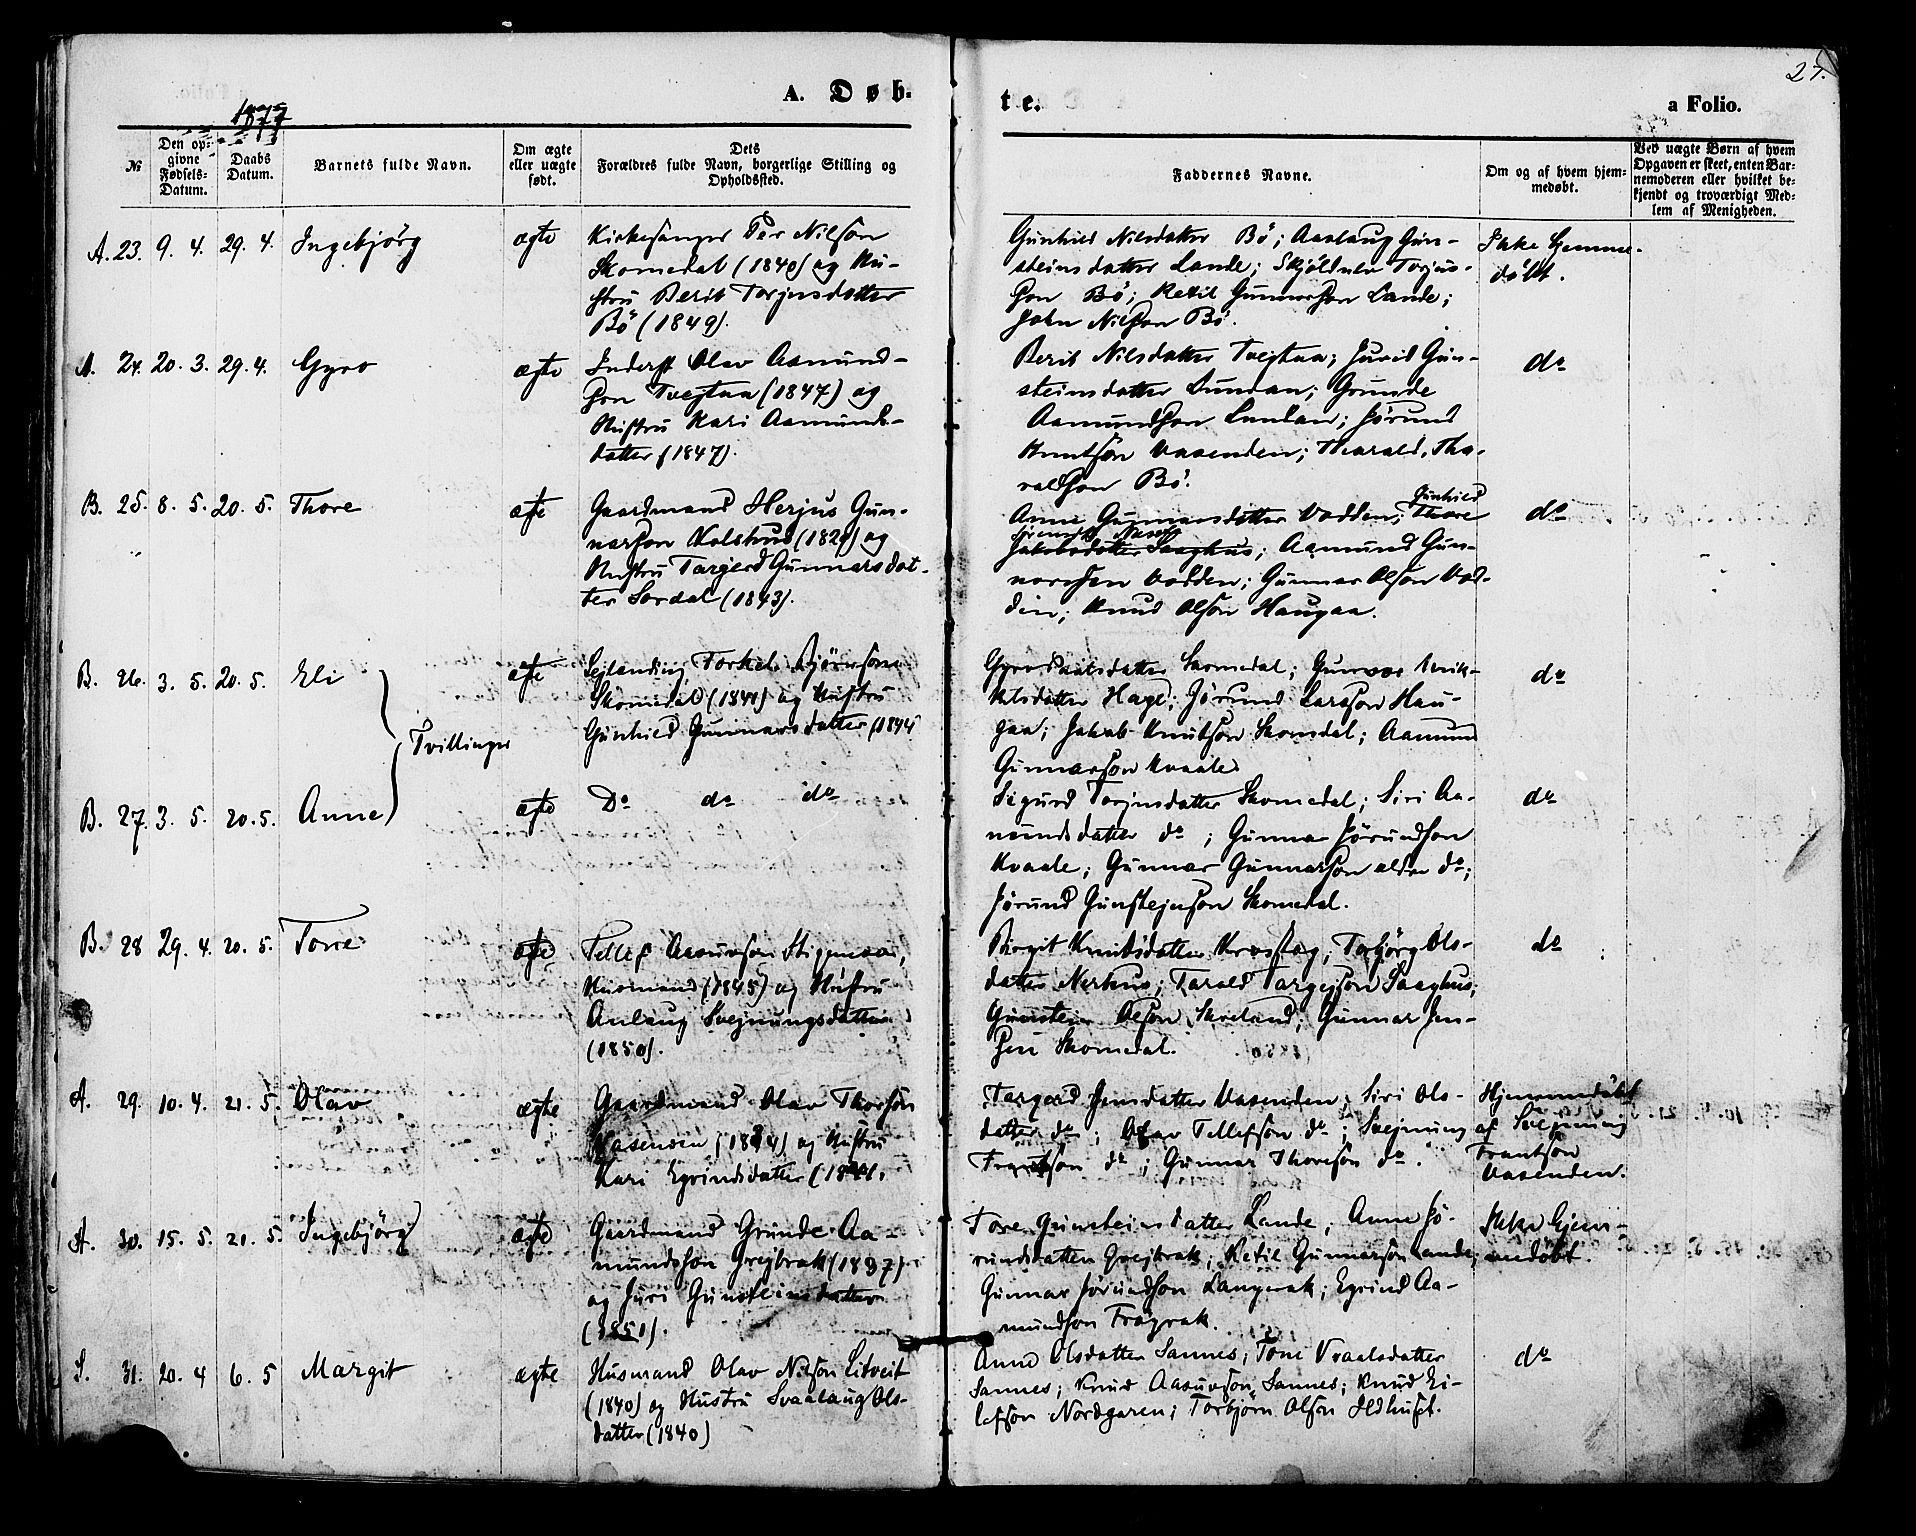 27.
A. Døb-
te.
a Folio.
1877
№
Den op-
givne
Fødsels-
Datum.
Daabs
Datum.
Barnets fulde Navn.
Om ægte
eller uægte
født.
Dets
Forældres fulde Navn, borgerlige Stilling og
Opholdssted.
Faddernes Navne.
Om og af hvem hjem-
medøbt.
Ved uægte Børn af hvem
Opgaven er skeet, enten Bar-
nemoderen eller hvilket be-
kjendt og troværdigt Med-
lem af Menigheden.
A. 23. 9. 4. 29. 4. Ingebjörg ægte
Kirkesanger Per Nilson
Skomedal (1840) og Hu-
stru Berit Torjusdatter
Bö (1849).
Gunhild Nilsdatter Bö; Aaslaug Gun-
steinsdatter Lande; Skjöldulv Torjus-
son Bö; Ketil Gunnarson Lande;
John Nilson Bö.
Ikke hjemme-
döbt.
A. 24. 20. 3. 29. 4. Gyro ægte
Inderst Olav Aamund-
son Tvejtaa (1847) og
Hustru Kari Aamunds-
datter (1847).
Berit Nilsdatter Tvejtaa; Juvil Gun-
steinsdatter Lundan; Grunde
Aamundson Lundan; Jörund
Knutson Vasenden; Tharald Tha-
raldson Bö.
do
B. 25. 8. 5. 20. 5. Thore ægte
Gaardmand Herjus Gun-
narson Kolshus (1829) og
Hustru Targjerd Gunnarsdat-
ter Sordal (1843).
Gunhild
Anne Gunnarsdatter Vodden; Thore
Jakobsdatter Saaghus; Aamund Gun-
narsen Vodden; Gunnar Olson Vod-
den; Knud Olson Haugaa.
do
B. 26. 3. 5. 20. 5. Eli ægte
Torkel Björnson
Skomedal (1840) og Hustru
Gunhild Gunnarsdatter (1844
Gyro datter Skomedal; Gunvor
datter Hage; Jörund Larsson Hau-
gaa; Jakob Knutson Skomedal; Aamund
Gunnarson Kvaale.
do
Tvillinger
B. 27. 3. 5. 20. 5. Anne ægte
Do do do
Sigurd Torjusdatter Skomedal; Siri Aa-
mundsdatter do; Gunnar Jörundson
Kvaale; Gunnar Gunnarson eldre do;
Jörund Gunstejnson Skomedal.
do
B. 28 29. 4. 20. 5. Torre ægte
Tellef Aasuvson
Husmand (1845) og Hustru
Aslaug Svejnungsdatter
(1850).
Birgit Knutsdatter ; Torbjörg Ols-
datter Nerhus; Tarald Targejson Saaghus;
Gunstein Olson Skreland; Gunnar Jen-
sen Skomedal.
do
A. 29. 10. 4. 21. 5. Olav ægte
Gaardmand Olav Thorson
Vasenden (1844) og Hustru
Kari Egrindsdatter
Targerd Jensdatter Vasenden; Siri Ols-
datter do; Olav Tellefson do; Svejnung
Frantson do; Gunnar Thoreson do.
Hjemmedöbt
af Svejnung
Frantson
Vasenden.
A. 30. 15. 5. 21. 5. Ingebjörg ægte
Gaardmand Grunde Aa-
mundsson Grejbrak (1837)
og Juri Gunsteinsdatter
(1851).
Tore Gunsteinsdatter Lande; Anne Jö-
rundsdatter Grejbrak; Ketil Gunnarson Lande;
Gunnar Jörundson Langerak; Egrind Aa-
mundson Frøyrak.
Ikke hjem-
medöbt.
S. 31. 20. 4 6. 5 Margit ægte
Husmand Olav Nilson Litveit
(1840) og Hustru Svaalaug Ols-
datter (1840)
Anne Olsdatter Sannes; Tone Vraalsdatter
Sannes; Knud Aasuvson Sannes; Knud Ei-
lefson Nordgaren; Torbjörn Olson Ildhuset.
do